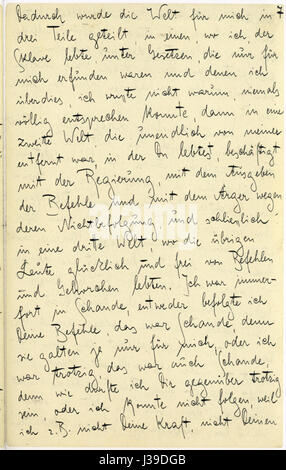 Dadurch wurde die Welt für mich in 7
drei Teile geteilt in einen, wo ich, der
Sklave lebte unter Gesetzen, die nur für
mich erfunden waren und denen ich
überdies, ich wusste nicht warum niemals
völlig entsprechen konnte, dann in eine
zweite Welt, die unendlich von meiner
entfernt war, in der Du lebtest, beschäftigt
mit der Regierung, mit dem Ausgeben
der Befehle und mit dem Ärger wegen
deren Nichtbefolgung und schliesslich
in eine dritte Welt, wo die übrigen
Leute glücklich und frei von Befehlen
und Gehorchen lebten. Ich war immer-
fort in Schande, entweder befolgte ich
Deine Befehle, das war Schande, denn
sie galten ja nur für mich, oder ich
war trotzig, das war auch Schande,
denn wie durfte ich Dir gegenüber trotzig
sein, oder ich konnte nicht folgen weil
ich z. B. nicht Deine Kraft, nicht Deinen
alamy
Image ID: J39DGB
www.alamy.com